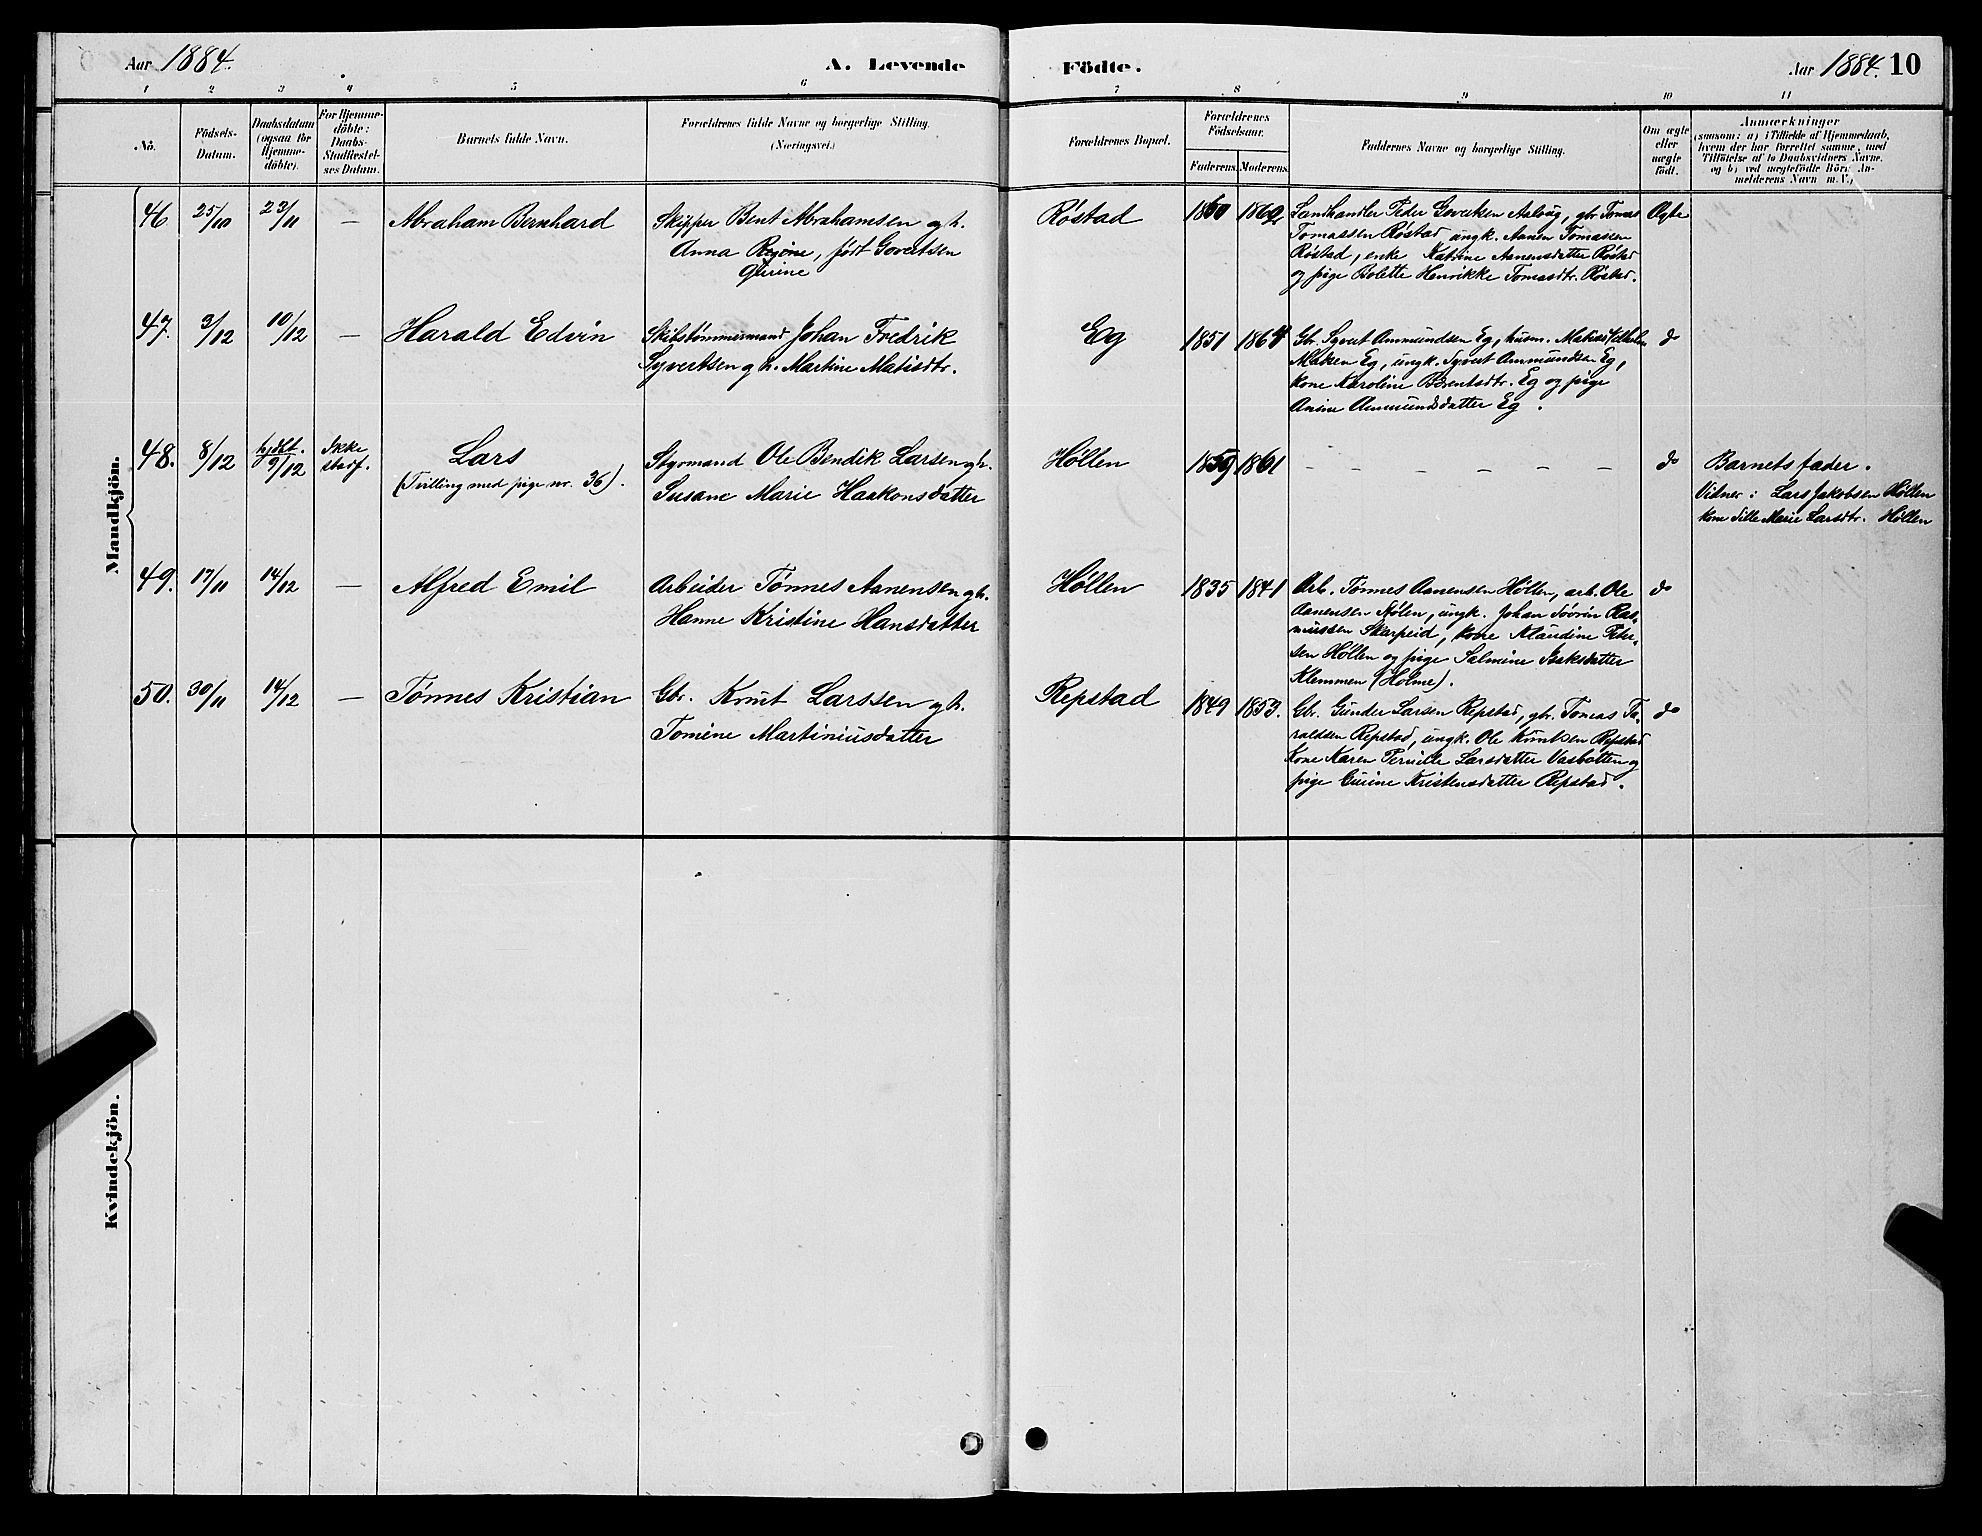 Aar 1884.
A. Levende Födte.
Aar 1884. 10
1 2 3 4 5 6 7 8 9 10 11
No.
Födsels-
Datum.
Daabsdatum
(ogsaa for
Hjemme-
döbte).
For Hjemme-
döbte:
Daabs-
Stadfæstel-
ses Datum.
Barnets fulde Navn.
Forældrenes fulde Navne og borgerlige Stilling.
(Næringsvei.)
Forældrenes Bopæl.
Forældrenes
Födselsaar.
Faderens. Moderens.
Faddernes Navne og borgerlige Stilling.
Om ægte
eller
uægte
födt.
Anmærkninger
(saasom: a) i Tilfælde af Hjemmedaab,
hvem der har forrettet samme, med
Tilföielse af to Daabsvidners Navne.
og b) ved uægtefödte Börn An-
melderens Navn m. V.)
Mandkjön.
46 25/10 23/11 — Abraham Bernhard
Skipper Bent Abrahamsen og h.
Anna, født Govertsen
Gurine
Røstad
Landhandler Peder Govertsen, gbr. Tomas
Tomassen Røstad ungk. Aanen Tomassen
Røstad, enke Katrine Aanensdatter Røstad
og pige Bolette Henrikke Tomasdtr. Røstad.
Ægte
47. 3/12 10/12 — Harald Edvin
Skibstømmermand Johan Fredrik
Syvertsen og h. Martine Matisdtr.
Eg
1851 1864
Gbr. Syvert Ammundsen Eg, husm. Matias
Eg, ungk. Syvert Ammundsen Eg,
kone Karoline Berentsdtr. Eg og pige
Anine Ammundsdatter Eg.
do
48. 8/12 hjdbt. 9/12 Ikke
stadf.
Lars
(Tvilling med pige nr. 36).
Styrmand Ole Bendik Larsen og h.
Susane Marie Haakonsdatter
Høllen
1859 1861
— — — — — — —
do
Barnets fader.
Vidner: Lars Jakobsen Høllen
kone Marie Larsdtr. Høllen
49. 17/11 14/12 — Alfred Emil
Arbeider Tønnes Aanensen og h.
Hanne Kristine Hansdatter
Høllen
1835 1841
Arb. Tønnes Aanensen Høllen, arb. Ole
Aanensen, ungk. Johan Ras-
mussen Skarpeid, kone Klaudine Peter-
sen Høllen og pige Salmine Isaksdatter
Klemmen (Holme).
do
50. 30/11 14/12 — Tønnes Kristian
Gbr. Knut Larssen og h.
Tomine Martiniusdatter
Repstad
1849 1853.
Gbr. Gunder Larsen Repstad, gbr. Tomas Ta-
raldsen Repstad, ungk. Ole Knutsen Repstad
Kone Karen Pernille Larsdatter Vasbotten og
pige Gurine Kristensdatter Repstad.
do
Kvindekjön.